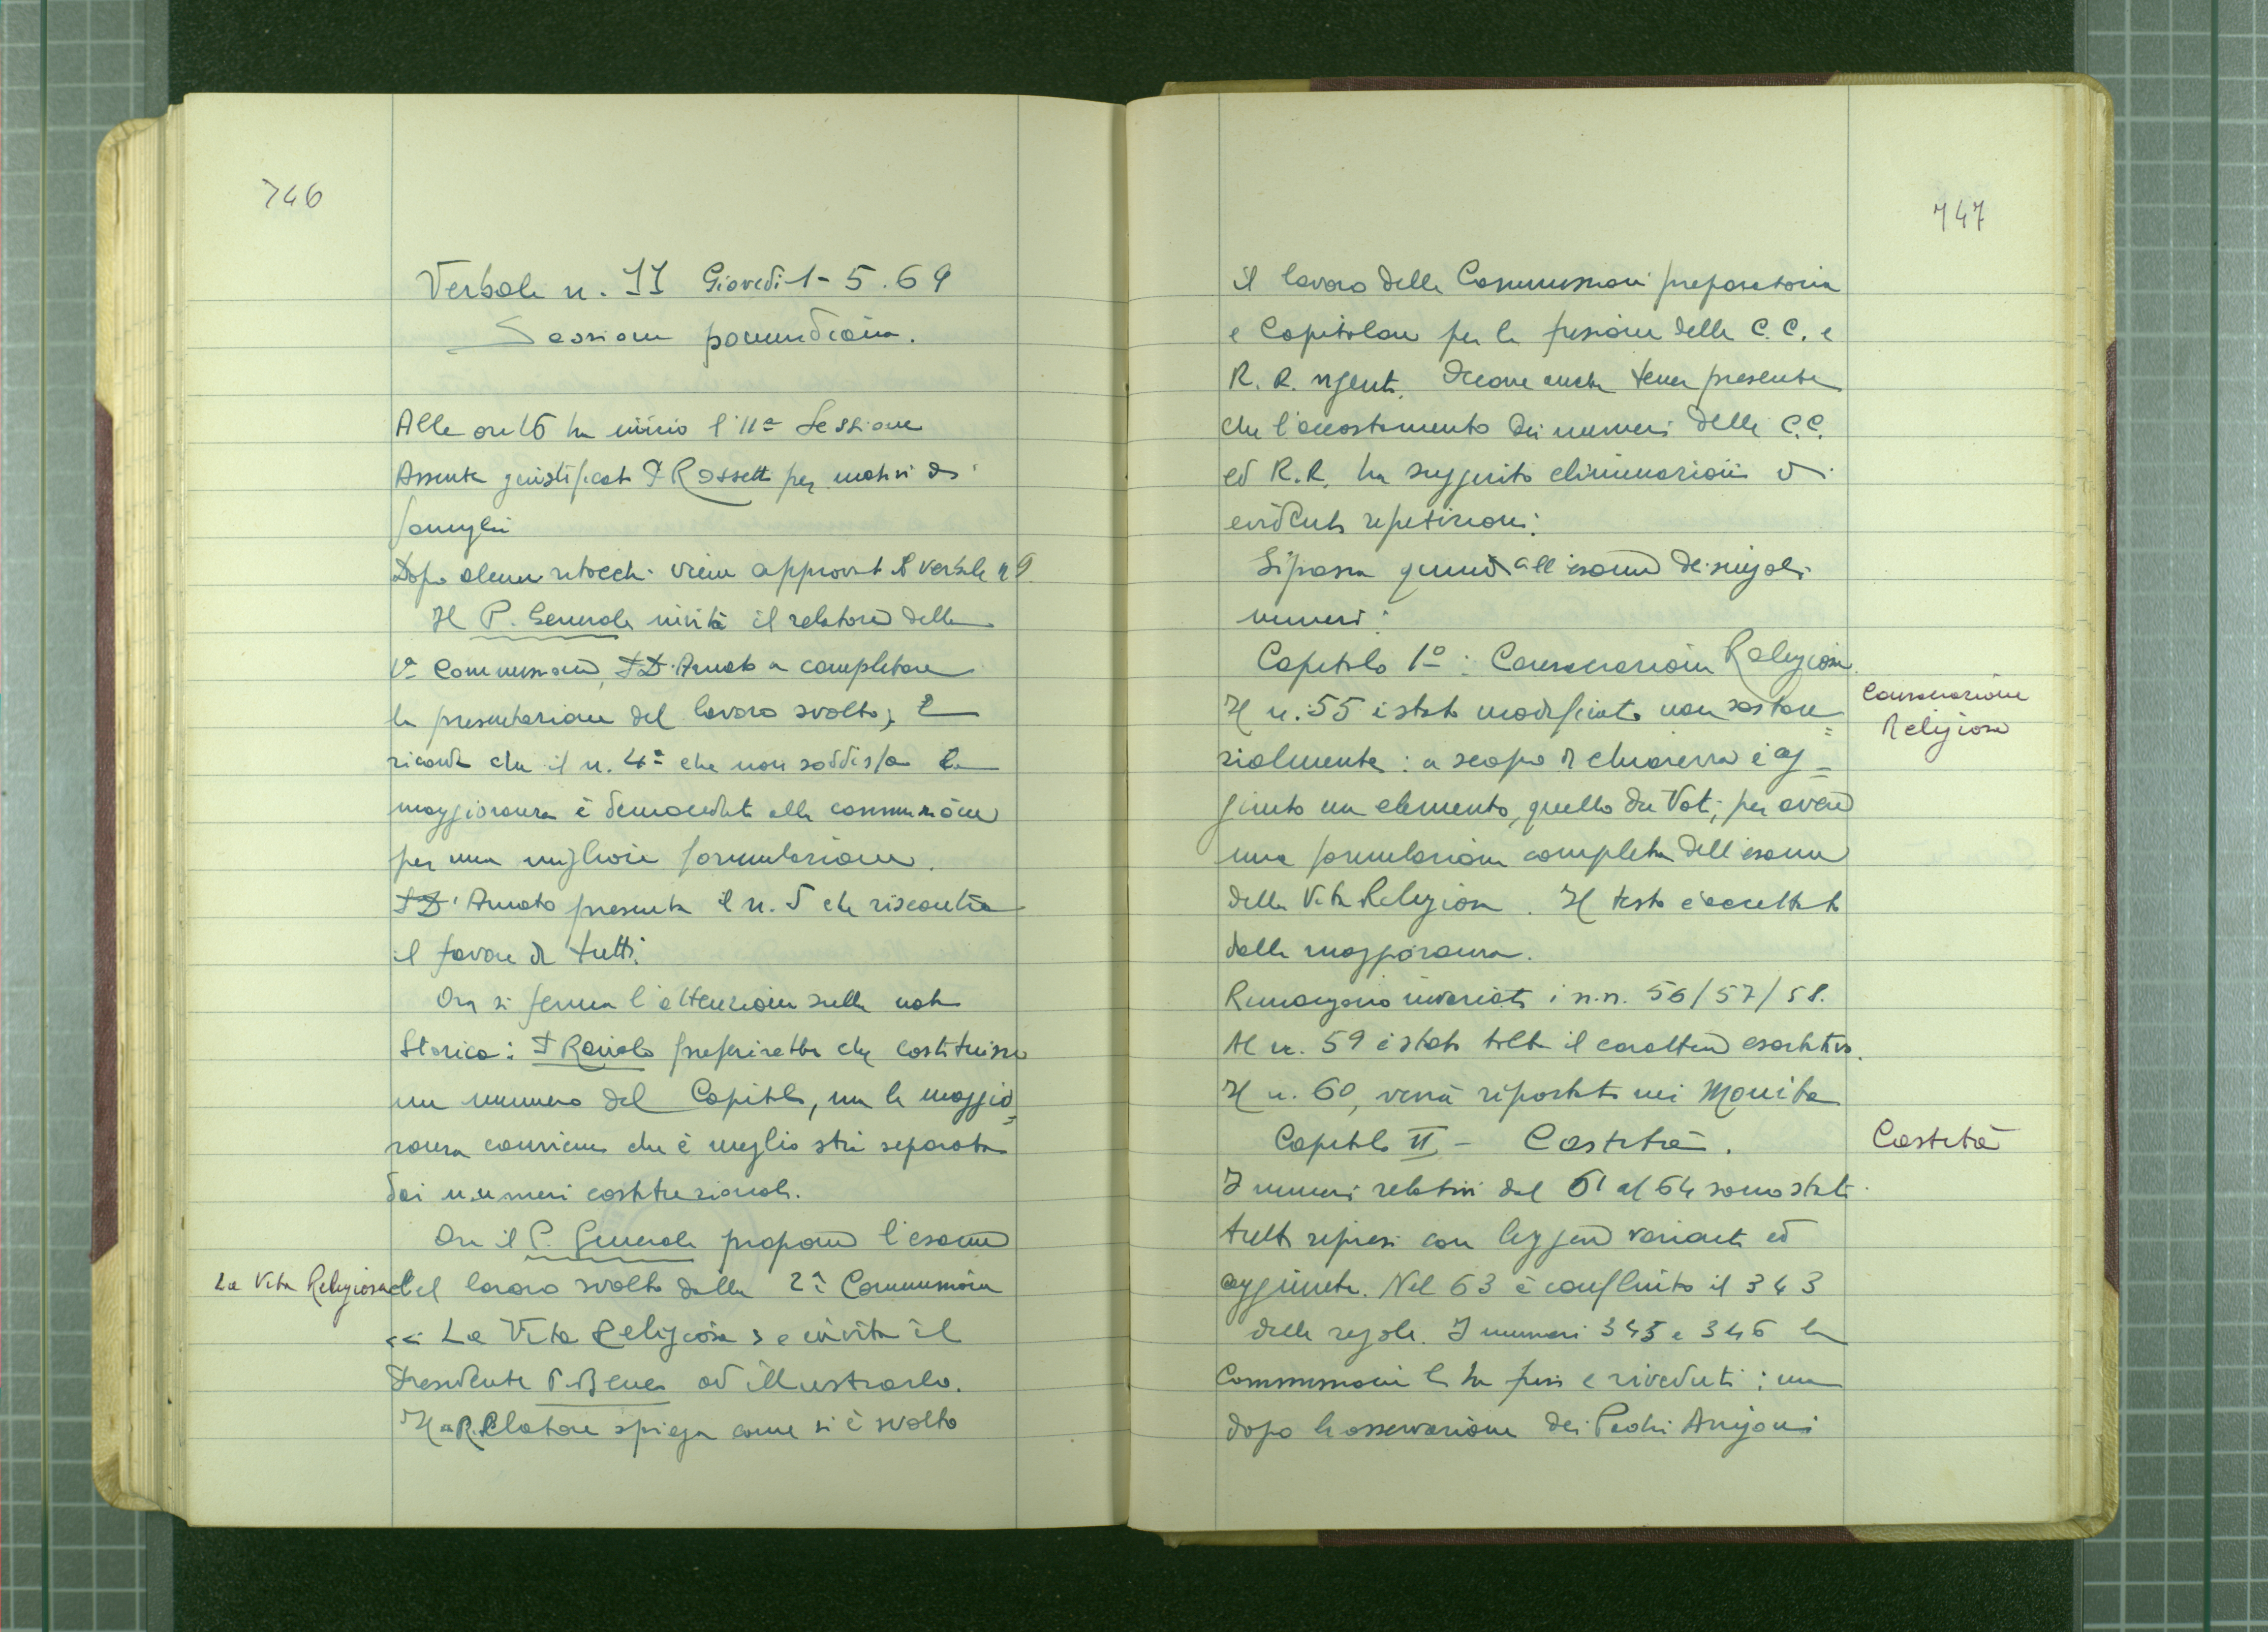 746
Verbale n. 11 Giovedì 1-5.69
Sessione pomeridiana.
Alle ore 16 ha inizio l'11ª Sessione
Assente giustificato P Rossetti per motivi di
famiglia
Dopo alcuni ritocchi viene approvato il verbale n 9
Il P. Generale invita il relatore della
1ª Commissione, P D'Amato a completare
la presentazione del lavoro svolto; E
ricorda che il n. 4º che non soddisfa la
maggioranza è demandato alla commissione
per una migliore formulazione.
P D'Amato presenta il n. 5 che riscontra
il favore di tutti.
Ora si ferma l'attenzione sulla nota
Storica: P Raviolo preferirebbe che costituisse
un numero del Capitolo, ma la maggio=
ranza conviene che è meglio stia separata
dai numeri costituzionali.
Ora il P. Generale propone l'esame
La Vita Religiosa
del lavoro svolto dalla 2ª Commissione
<< La Vita Religiosa > e invita il
Presidente P. Bene ad illustrarlo.
Il Relatore spiega come si è svolto
747
il lavoro delle Commissioni preparatoria
e Capitolare per la fusione delle C.C. e
R.R. vigenti. Occorre anche tener presente
che l'accostamento dei numeri delle C.C.
ed R.R. ha suggerito eliminazioni di
evidenti ripetizioni.
Si passa quindi all'esame dei singoli
numeri:
Capitolo 1º: Consacrazione Religiosa.
Consacrazione
Religiosa
Il n. 55 è stato modificato non sostan=
zialmente: a scopo di chiarezza è ag=
giunto un elemento, quello dei Voti, per avere
una formulazione completa dell'esame
della Vita Religiosa. Il testo è accettato
dalla maggioranza.
Rimangono invariati i n.n. 56/57/58.
Al n. 59 è stato tolto il carattere esortativo.
Il n. 60, verrà riportato nei Monita
Capitolo II - Castità.
Castità
I numeri relativi dal 61 al 64 sono stati
tutti ripresi con leggere varianti ed
aggiunte. Nel 63 è confluito il 343
delle regole. I numeri 345 e 346 la
Commissione li ha presi e riveduti: ma
dopo la osservazione dei Padri Arrigoni